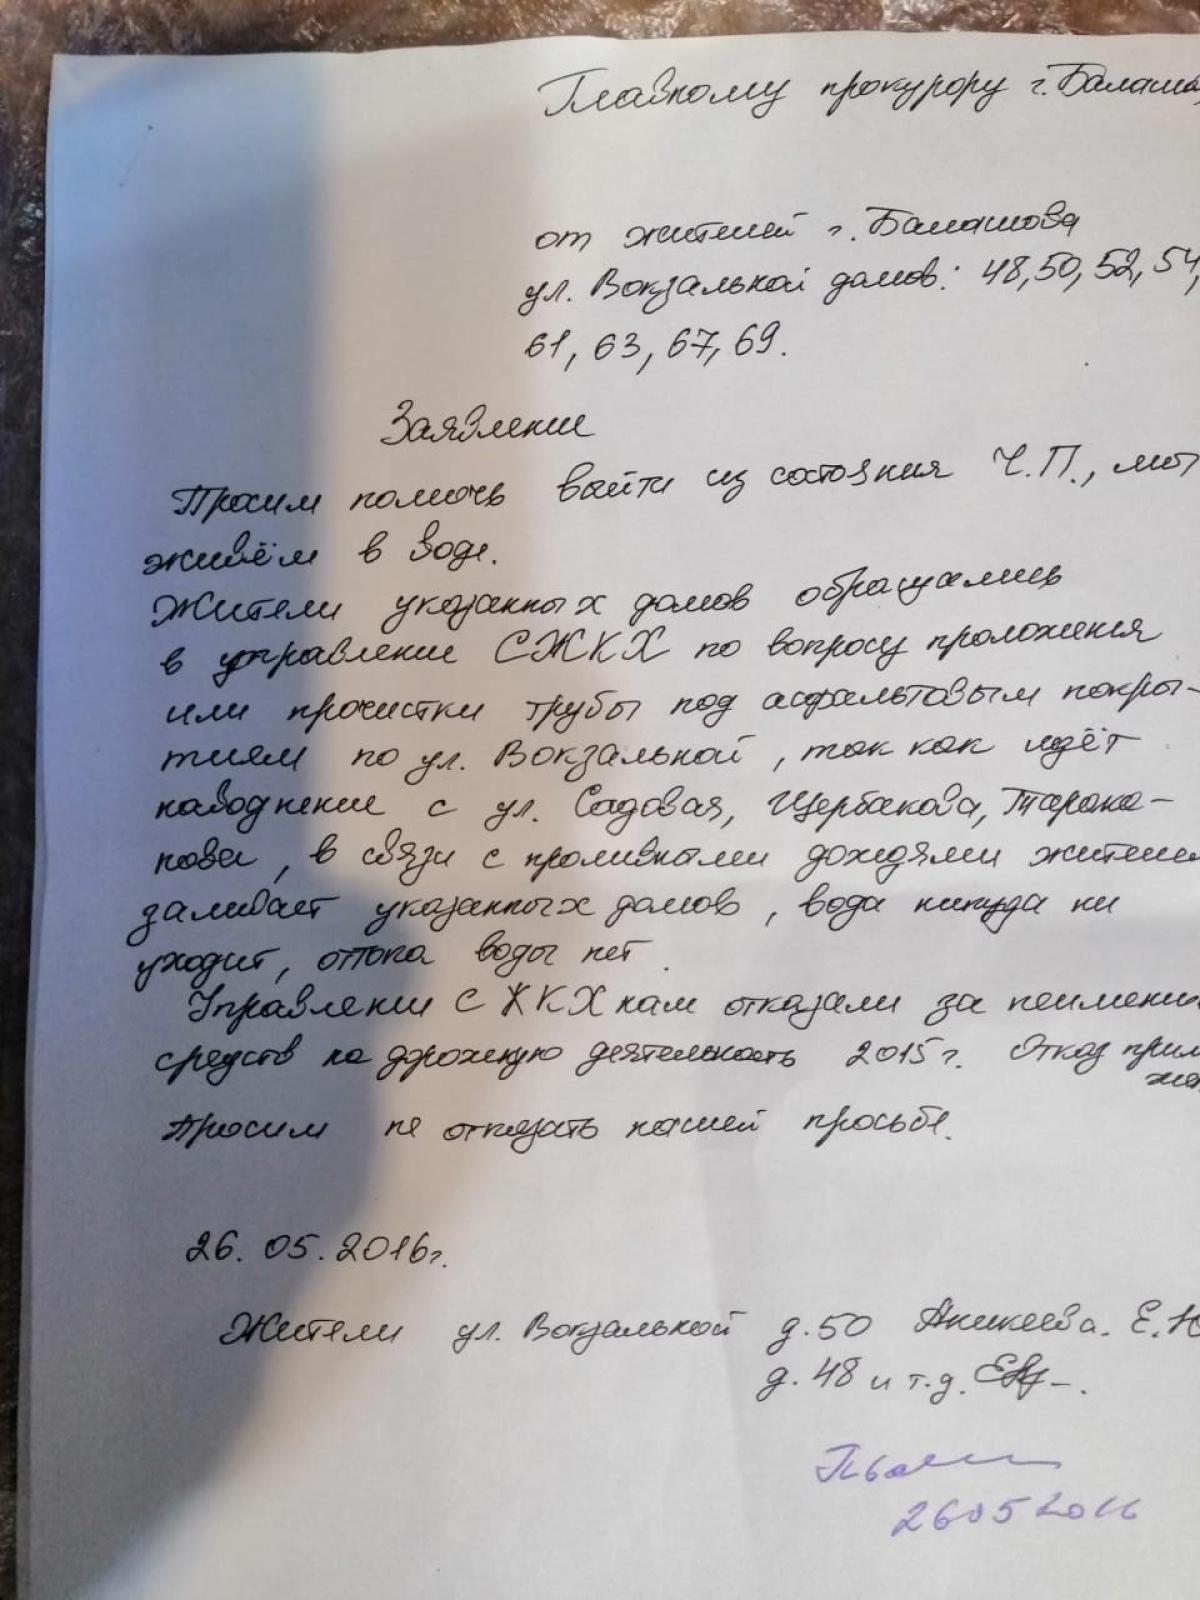 Главному прокурору г. Балашо
от жителей г. Балашова
ул. Вокзальной домов: 48, 50, 52, 54,
61, 63, 67, 69.
Заявление
Просим помочь выйти из состояния Ч.П., мы
живём в воде.
Жители указанных домов обращались
в управление СЖКХ по вопросу проложения
или прочистки трубы под асфальтовым покры-
тием по ул. Вокзальной, так как идёт
наводнение с ул. Садовая, Щербакова, Тарака-
нова, в связи с проливными дождями жителей
заливает указанных домов, вода никуда ни
уходит, оттока воды нет.
Управлении СЖКХ нам отказали за неимени
средств на дорожную деятельность 2015г. Отказ прил
жен
Просим не отказать нашей просьбе.
26.05.2016г.
Жители ул. Вокзальной д.50 Аникеева. Е.Н
д.48 и т.д.
26052016